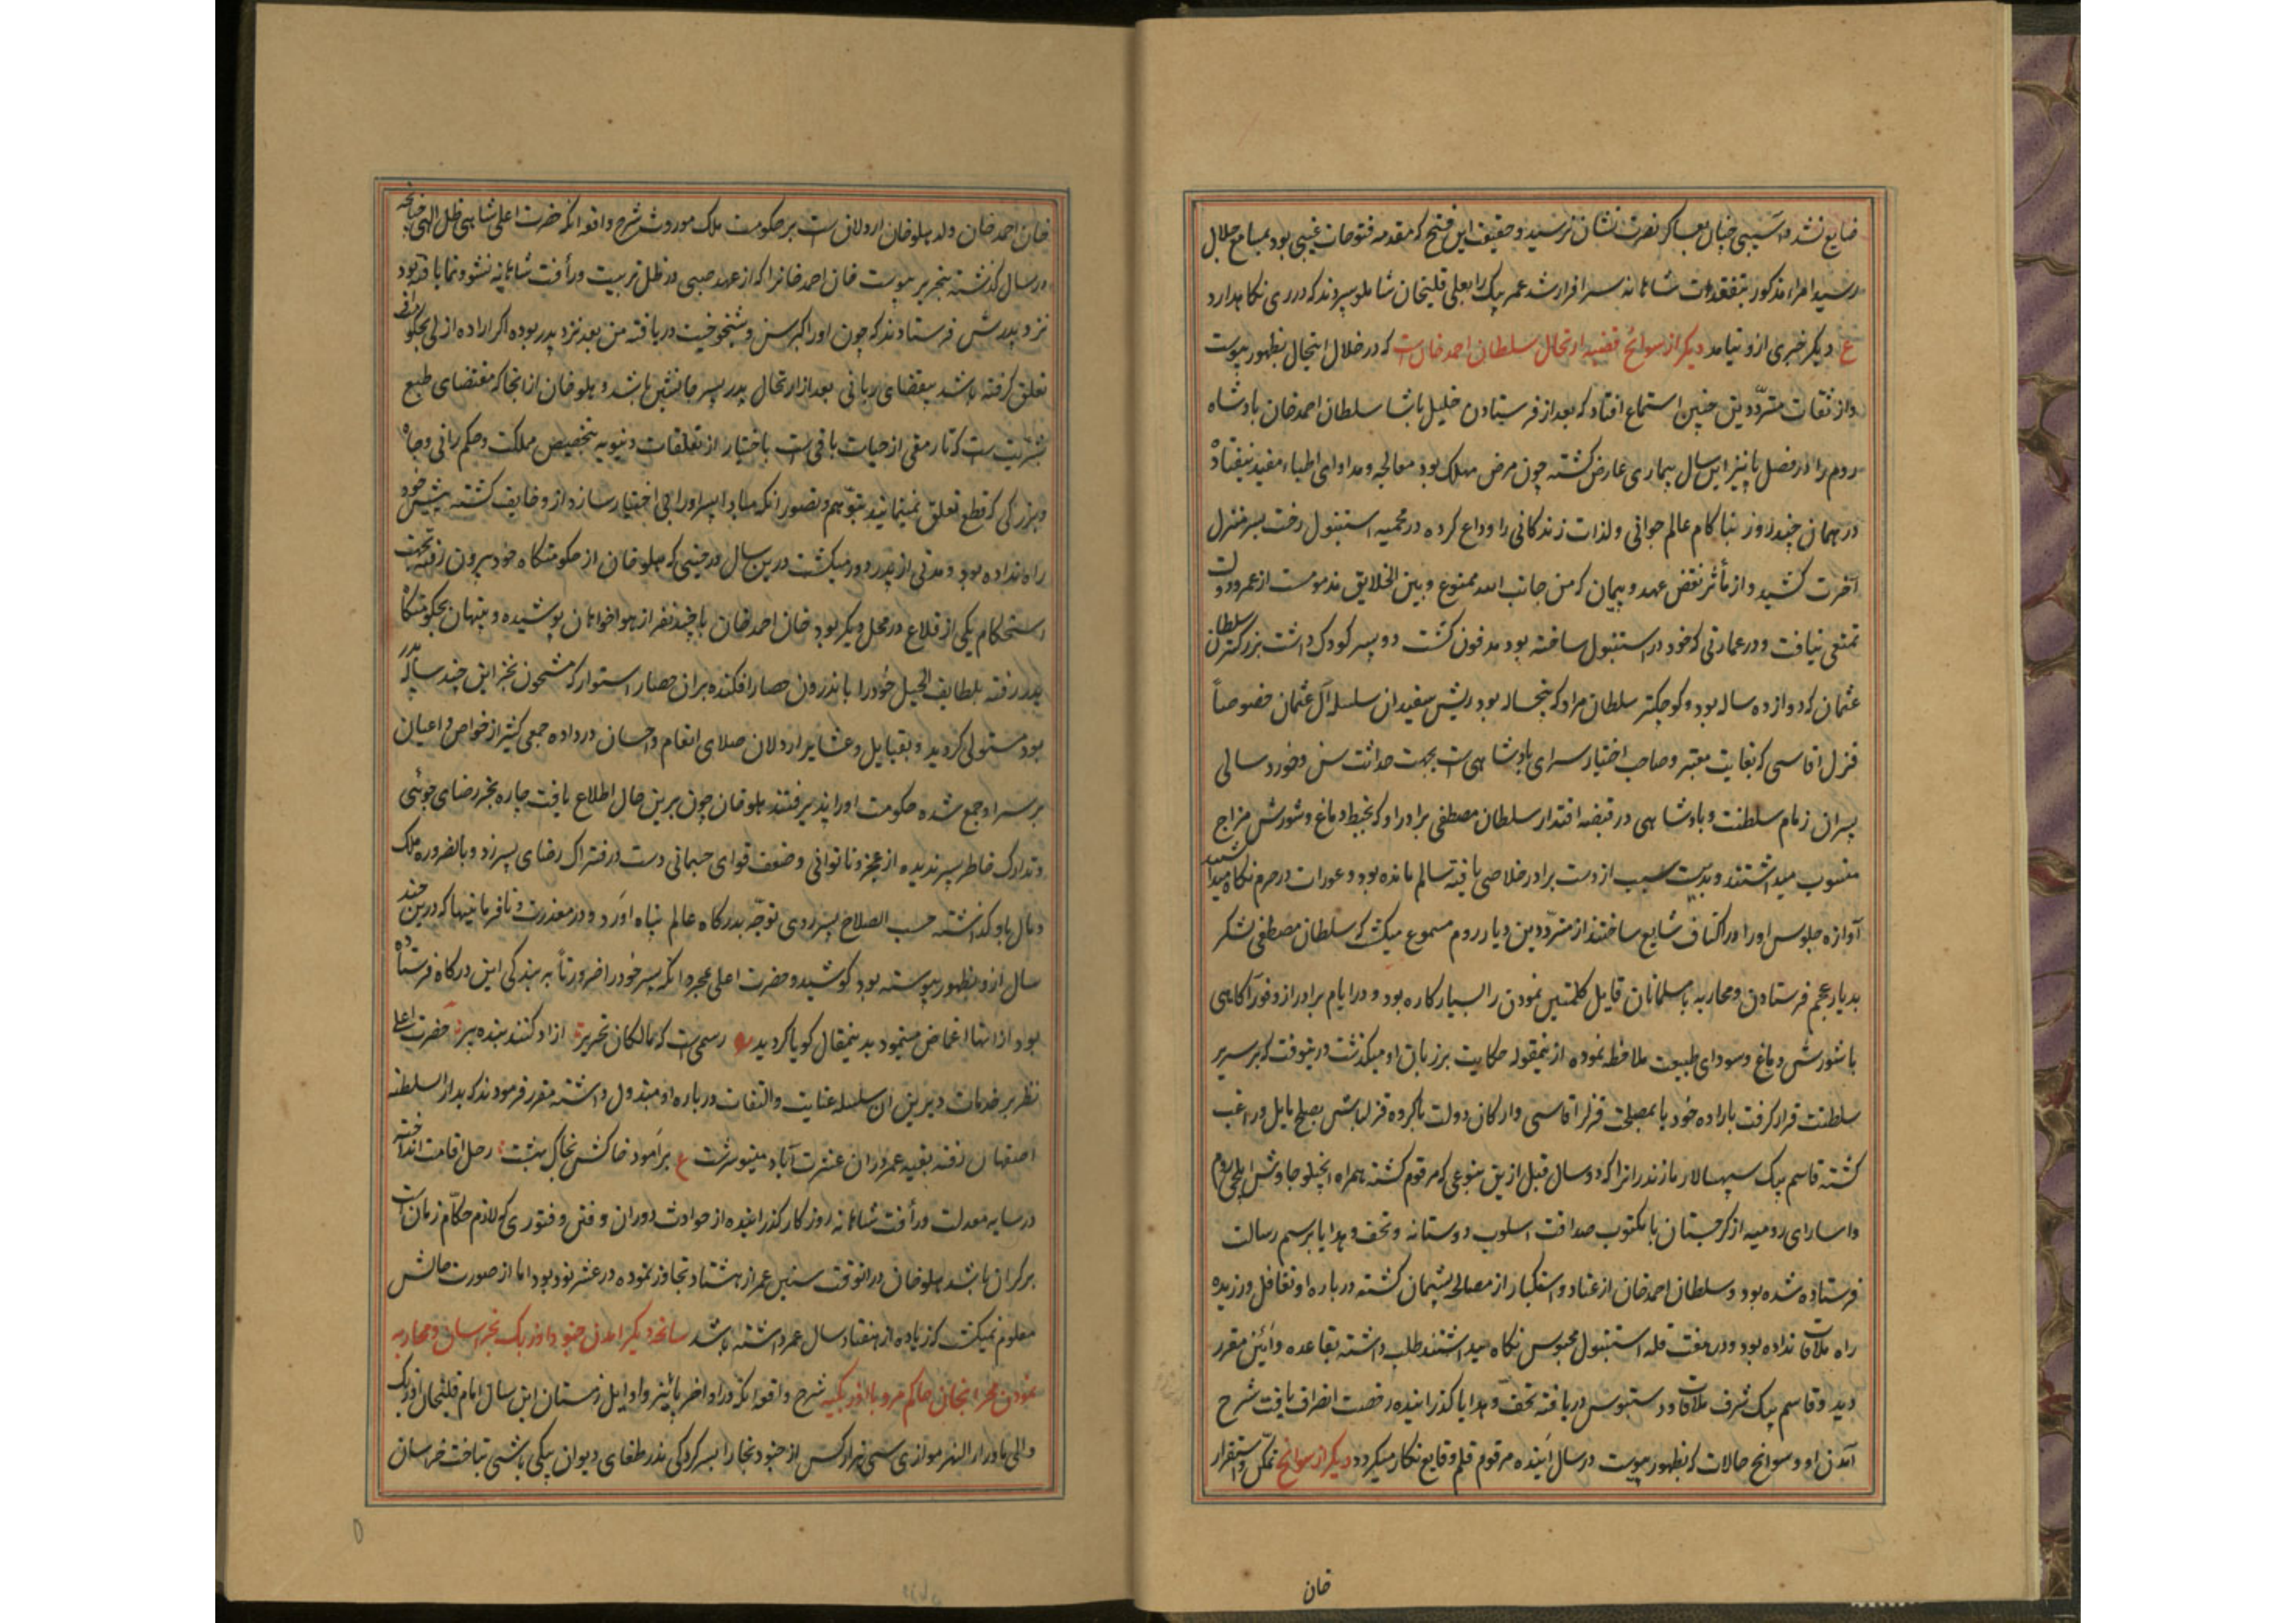 ضایع نشد و آسیبی چنان بعساکر نصرت نشان نرسید و حقیقت این فتح که مقدمه فتوحات غیبی بود بمسامع جلال
رسید امراء مذکور بتفقدات شاهانه سرافراز شد عمر بیک را بعلی قلیخان شاملو سپردند که در ری نکاهدارد
ع دیگر خبری ازو نیامد دیگر از سوانح قضیه ارتحال سلطان احمد خان است که در خلال اینحال بظهور پیوست
و از ثقات مترددین چنین استماع افتاد که بعد از فرستادن خلیل پاشا سلطان احمد خان پادشاه
روم را در فصل پائیز این سال بیماری عارض کشته چون مرض مهلک بود معالجه و مداوای اطباء مفید نیفتاد
در همان چند روز بناکام عالم جوانی و لذات زندکانی را وداع کرده در محمیه استنبول رخت بسر منزل
آخرت کشید و از تأثر نقض عهد و پیمان که من جانب الله ممنوع و بین الخلایق مذمومست از عمر و دولت
تمتعی نیافت و در عمارتی که خود در استنبول ساخته بود مدفون کشت دو پسر کودک داشت بزرکترین سلطان
عثمان که دوازده ساله بود و کوچکتر سلطان مراد که پنجساله بود ریش سفیدان سلسله آل عثمان خصوصاً
قزل اقاسی که بغایت معتبر و صاحب اختیار سرای پادشاهی است بجهت حداثت سن و خورد سالی
پسران زمام سلطنت و پادشاهی در قبضه اقتدار سلطان مصطفی برادر او که بخبط دماغ و شورش مزاج
منسوب میداشتند و بدین سبب از دست برادر خلاصی یافته سالم مانده بود و عورات در حرم نکاه میداشتند
آوازه جلوس او را در اکناف شایع ساختند از مترددین دیار روم مسموع میکشت که سلطان مصطفی لشکر
بدیار عجم فرستادن و محاربه با مسلمانان قایل کلمتین نمودن را بسیار کاره بود و در ایام برادر از وفور آکاهی
با شورش دماغ و سودای طبیعت ملاحظه نموده ازینمقوله حکایت بر زبان او میکذشت درینوقت که بر سریر
سلطنت قرار کرفت باراده خود یا بمصلحت قزلر اقاسی و ارکان دولت با کروه قزلباش بصلح مایل و راغب
کشته قاسم بیک سپهسالار مازندران را که دو سال قبل ازین بنوعی که مرقوم کشته همراه اینجیلو جاوش ایلچی روم
و اسارای رومیه از کرجستان با مکتوب صداقت اسلوب دوستانه و تحف و هدایا برسم رسالت
فرستاده شده بود و سلطان احمد خان از عناد و استکبار از مصالحه پشیمان کشته درباره او تغافل ورزیده
راه ملاقات نداده بود و در قلعه استنبول محبوس نکاه میداشتند طلب داشته بقاعده و آئین مقرر
دید و قاسم بیک شرف ملاقات و دستبوس دریافته تحف و هدایا کذرانیده رخصت انصراف یافت شرح
آمدن او و سوانح حالات که بظهور پیوست در سال آینده مرقوم قلم وقایع نکار میکردد دیگر از سوانح تمکن و استقرار
خان
خان احمد خان ولد هلو خان اردلان است بر حکومت ملک موروث شرح واقعه انکه حضرت اعلی شاهی ظل الهی چنانچه
در سال کذشته بتحریر پیوست خان احمد خان را که از عهد صبی در ظل تربیت و رأفت شاهانه نشو و نما یافته بود
نزد پدرش فرستادند که چون او را کبر سن و شیخوخیت دریافته من بعد نزد پدر بوده اکر اراده ازلی بحکومت او
تعلق کرفته باشد بمقتضای ربانی بعد از ارتحال پدر پسر جانشین باشد و هلو خان از انجا که مقتضای طبع
بشریت است که تا رمقی از حیات باقی است باختیار از تعلقات دنیویه بتخصیص مملکت و حکم رانی و جاه
و بزرکی که قطع تعلق نمینمایند بتوهم و تصور انکه مبادا پسر او را بی اختیار سازد ازو خایف کشته پیش خود
راه نداده بود و مدتی از پدر دور میکشت درین سال در حینی که هلو خان از حکومتکاه خود بیرون رفته بجهت
استحکام یکی از قلاع در محل دیگر بود خان احمد خان با چند نفر از هواخواهان پوشیده و پنهان بحکومتکاه
پدر رفته بلطایف الحیل خود را باندرون حصار افکنده بران حصار استوار که مشحون بخزاین چند ساله پدر
بود مستولی کردید و بقبایل و عشایر اردلان صلای انعام و احسان در داده جمعی کثیر از خواص و اعیان
بر سر او جمع شده حکومت او را پذیرفتند هلو خان چون برین حال اطلاع یافت چاره بجز رضای جوئی
و تدارک خاطر پسر ندیده از عجز و ناتوانی و ضعف قوای جسمانی دست در فتراک رضای پسر زد و بالضروره ملک
و مال باو کذاشته حسب الصلاح پسر روی توجه بدرکاه عالم پناه آورد و در معذرت و نافرمانیها که درین چند
سال ازو بظهور پیوسته بود کوشید و حضرت اعلی بمجرد انکه پسر خود را ضرورتاً به بندکی این درکاه فرستاده
بود از انها اغماض نمود بدینمقال کویا کردید رسمی است که مالکان تحریر آزاد کنند بنده پیر حضرت اعلی
نظر بر خدمات دیرین آن سلسله عنایت و التفات درباره او مبذول داشته مقرر فرمودند که بدار السلطنه
اصفهان رفته بقیه عمر دران عشرت آباد مینو سرشت ع برآمود خاکش بخاک بهشت رحل اقامت انداخته
در سایه معدلت و رأفت شاهانه روزکار کذرانیده از حوادث دوران و فتن و فتوری که لازم حکام زمان است
بر کران باشد هلو خان درانوقت سنین عمر از هشتاد تجاوز نموده در عشر نود بود اما از صورت حالش
معلوم نمیکشت که زیاده از هفتاد سال عمر داشته باشد سانحه دیگر آمدن جنود اوزبک بخراسان و محاربه
نمودن محرابخان حاکم مرو با اوزبکیه شرح واقعه انکه در اواخر پائیز و اوایل زمستان این سال امام قلیخان اوزبک
والی ماوراء النهر موازی سی هزار کس از جنود بخارا بسرکردکی نذر طغای دیوان بیکی باشی بتاخت خراسان